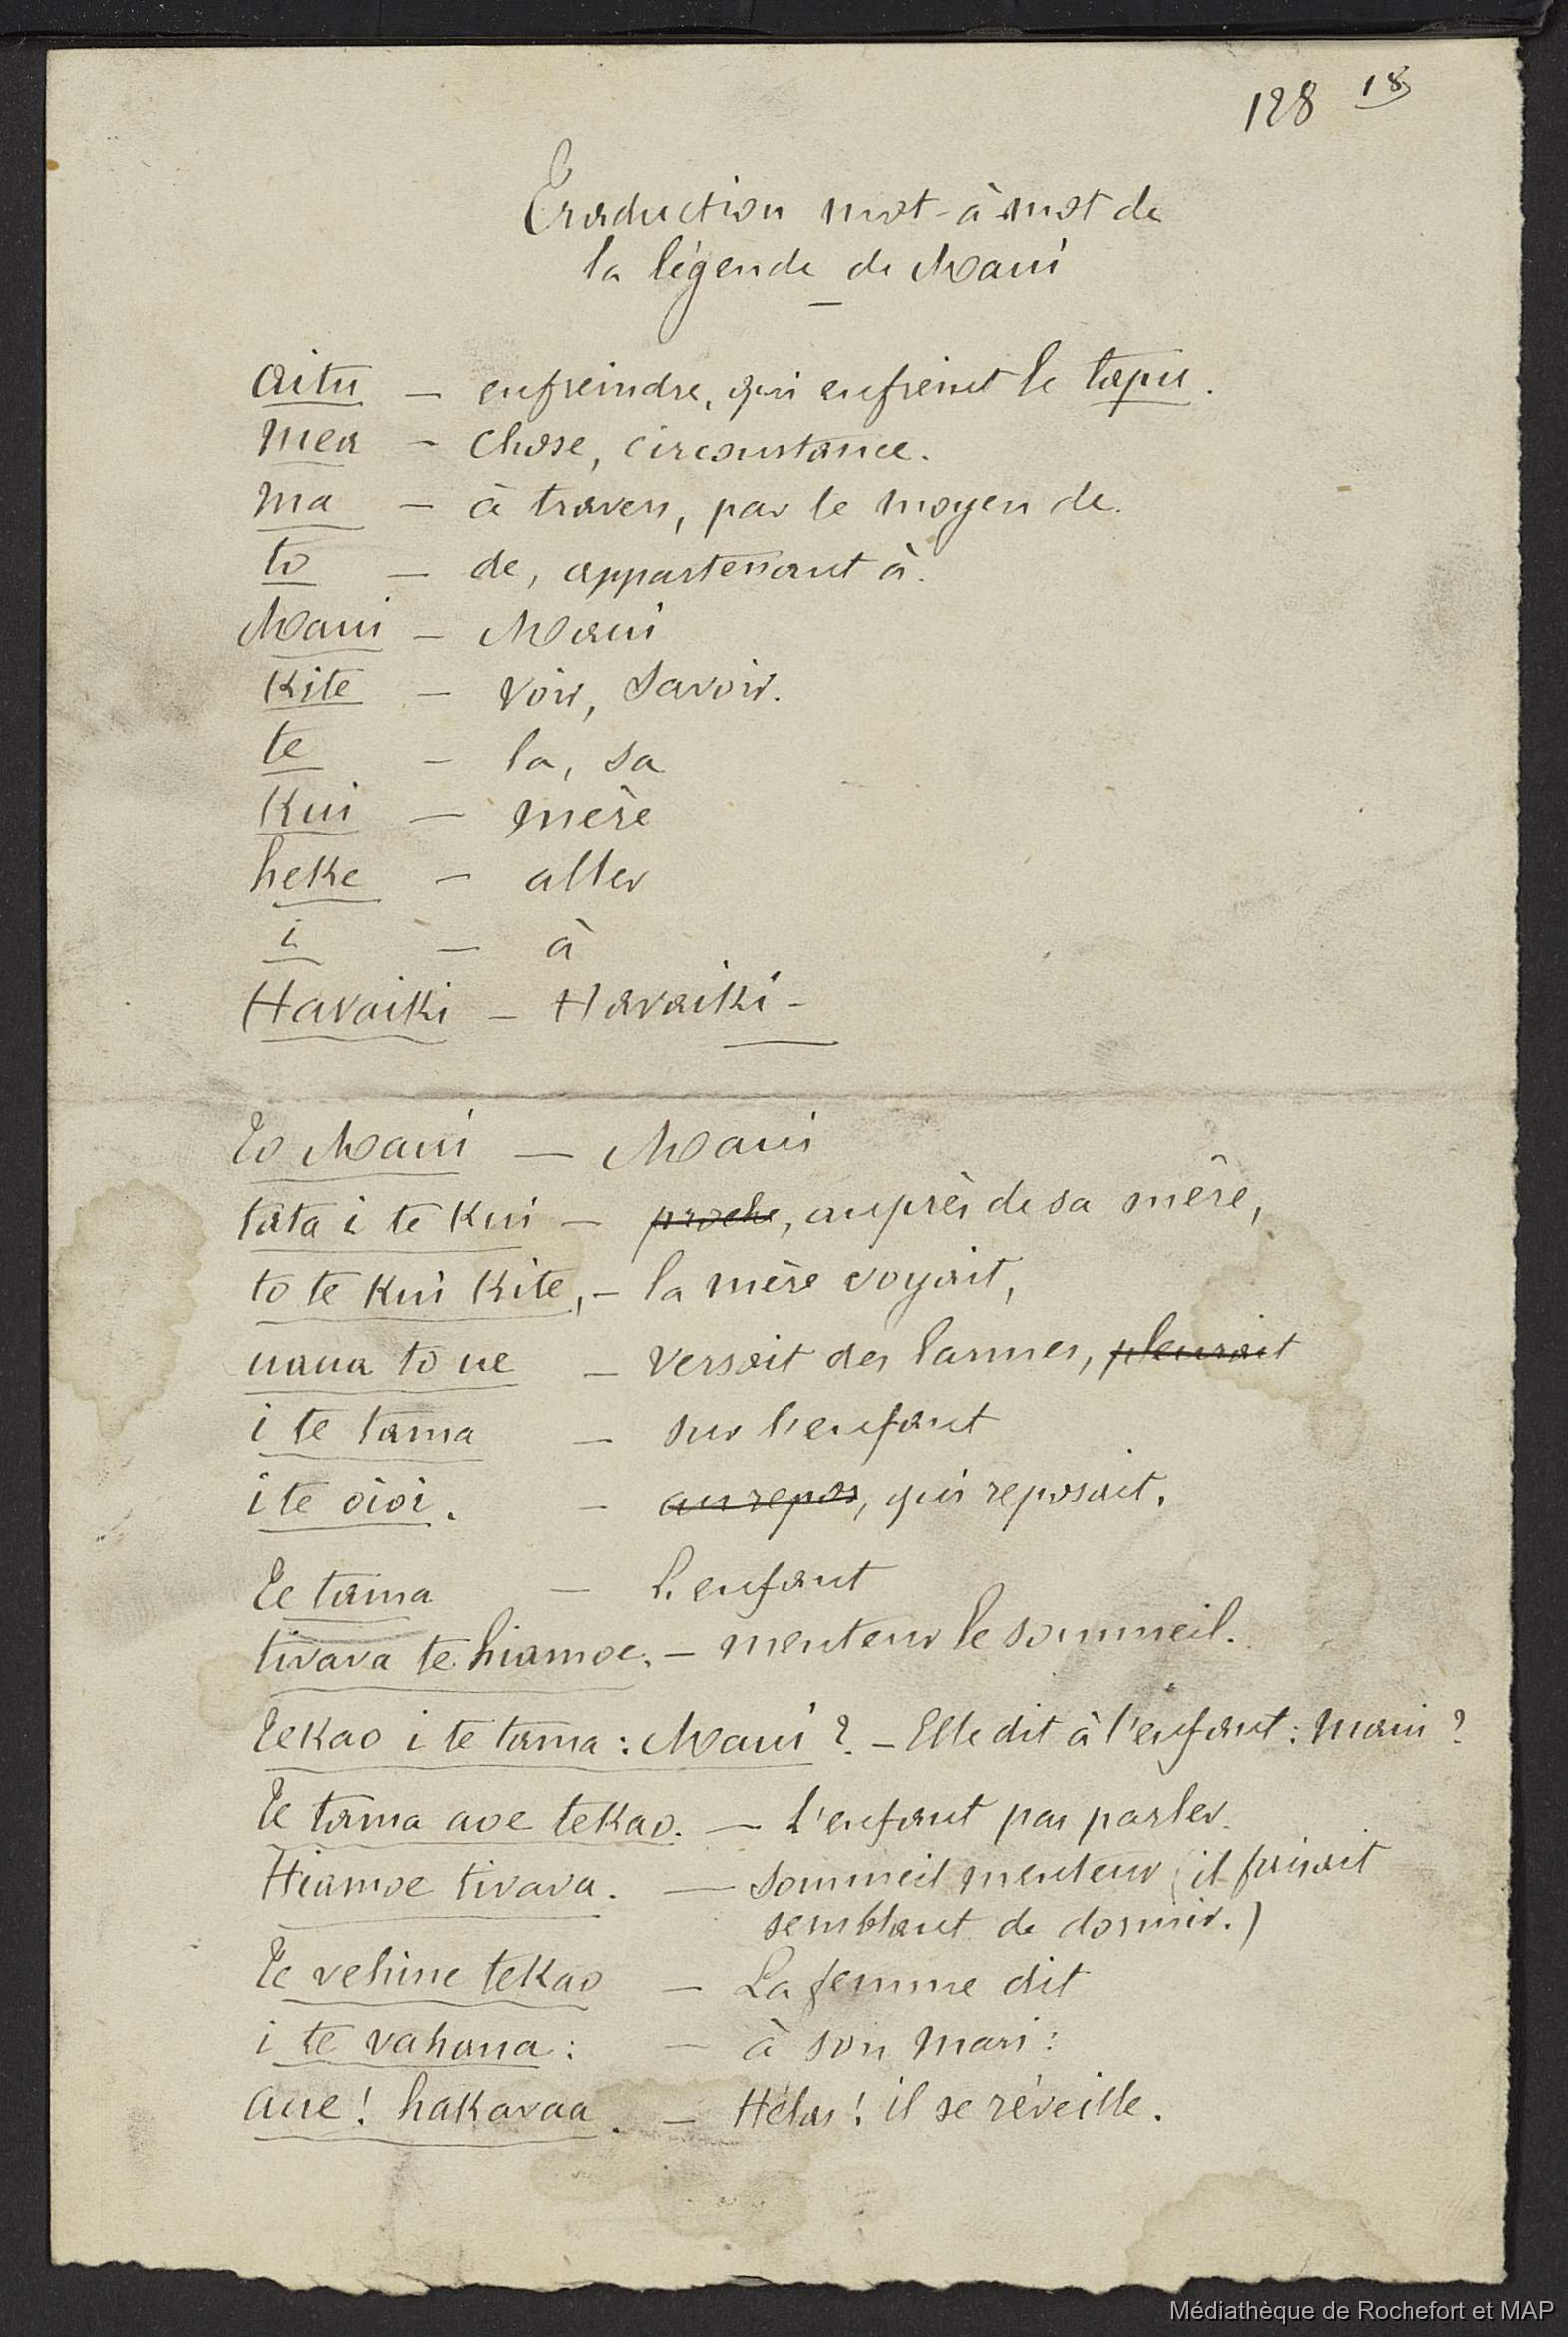 128 18
Traduction mot-à-mot de
la légende de Maui
aitu — enfreindre, qui enfreint le tapu.
mea — chose, circonstance.
ma — à travers, par le moyen de.
to — de, appartenant à.
Maui — Maui
Kite — voir, savoir.
te — la, sa
Kui — mère
heke — aller
i — à
Havaiki — Havaiki —
To Maui — Maui
tata i te Kui — proche, auprès de sa mère,
to te Kui Kite, — la mère voyait,
uaua to ue — versait des larmes, pleurait
i te tama — sur l'enfant
i te oioi. — au repos, qui reposait.
Te tama — L'enfant
tivava te hiamoe. — menteur le sommeil.
Tekao i te tama : Maui ? — Elle dit à l'enfant : Maui ?
Te tama aoe tekao. — L'enfant pas parler.
Hiamoe tivava. — Sommeil menteur (il faisait
semblant de dormir.)
Te vehine tekao — La femme dit
i te vahana : — à son mari :
aue ! hakavaa. — Hélas ! il se réveille.
Médiathèque de Rochefort et MAP